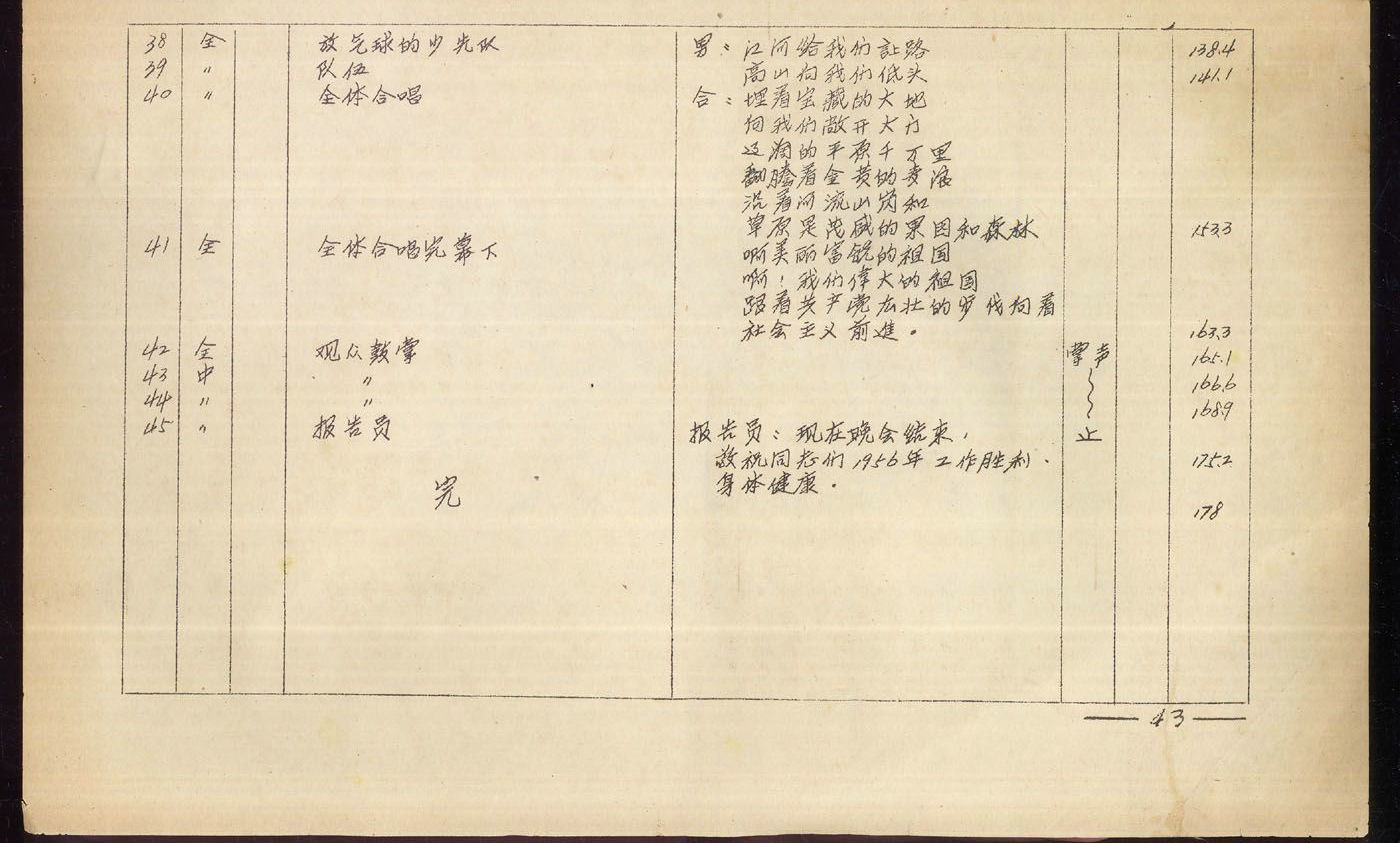 38 全 放气球的少先队 男：江河给我们讓路 138.4
39 〃 队伍 高山向我们低头 141.1
40 〃 全体合唱 合：埋着宝藏的大地
向我们敞开大门
辽阔的平原千万里
翻腾着金黄的麦浪
沿着河流山岗和
草原是茂盛的果园和森林 153.3
41 全 全体合唱完幕下 啊美丽富饶的祖国
啊！我们偉大的祖国
跟着共产党 壮的步伐向着
社会主义前進。 163.3
42 全 观众鼓掌 掌声 165.1
43 中 〃 166.6
44 〃 〃 168.9
45 〃 报告员 报告员：现在晚会结束， 止
敬祝同志们1956年工作胜利． 175.2
身体健康．
完 178
43